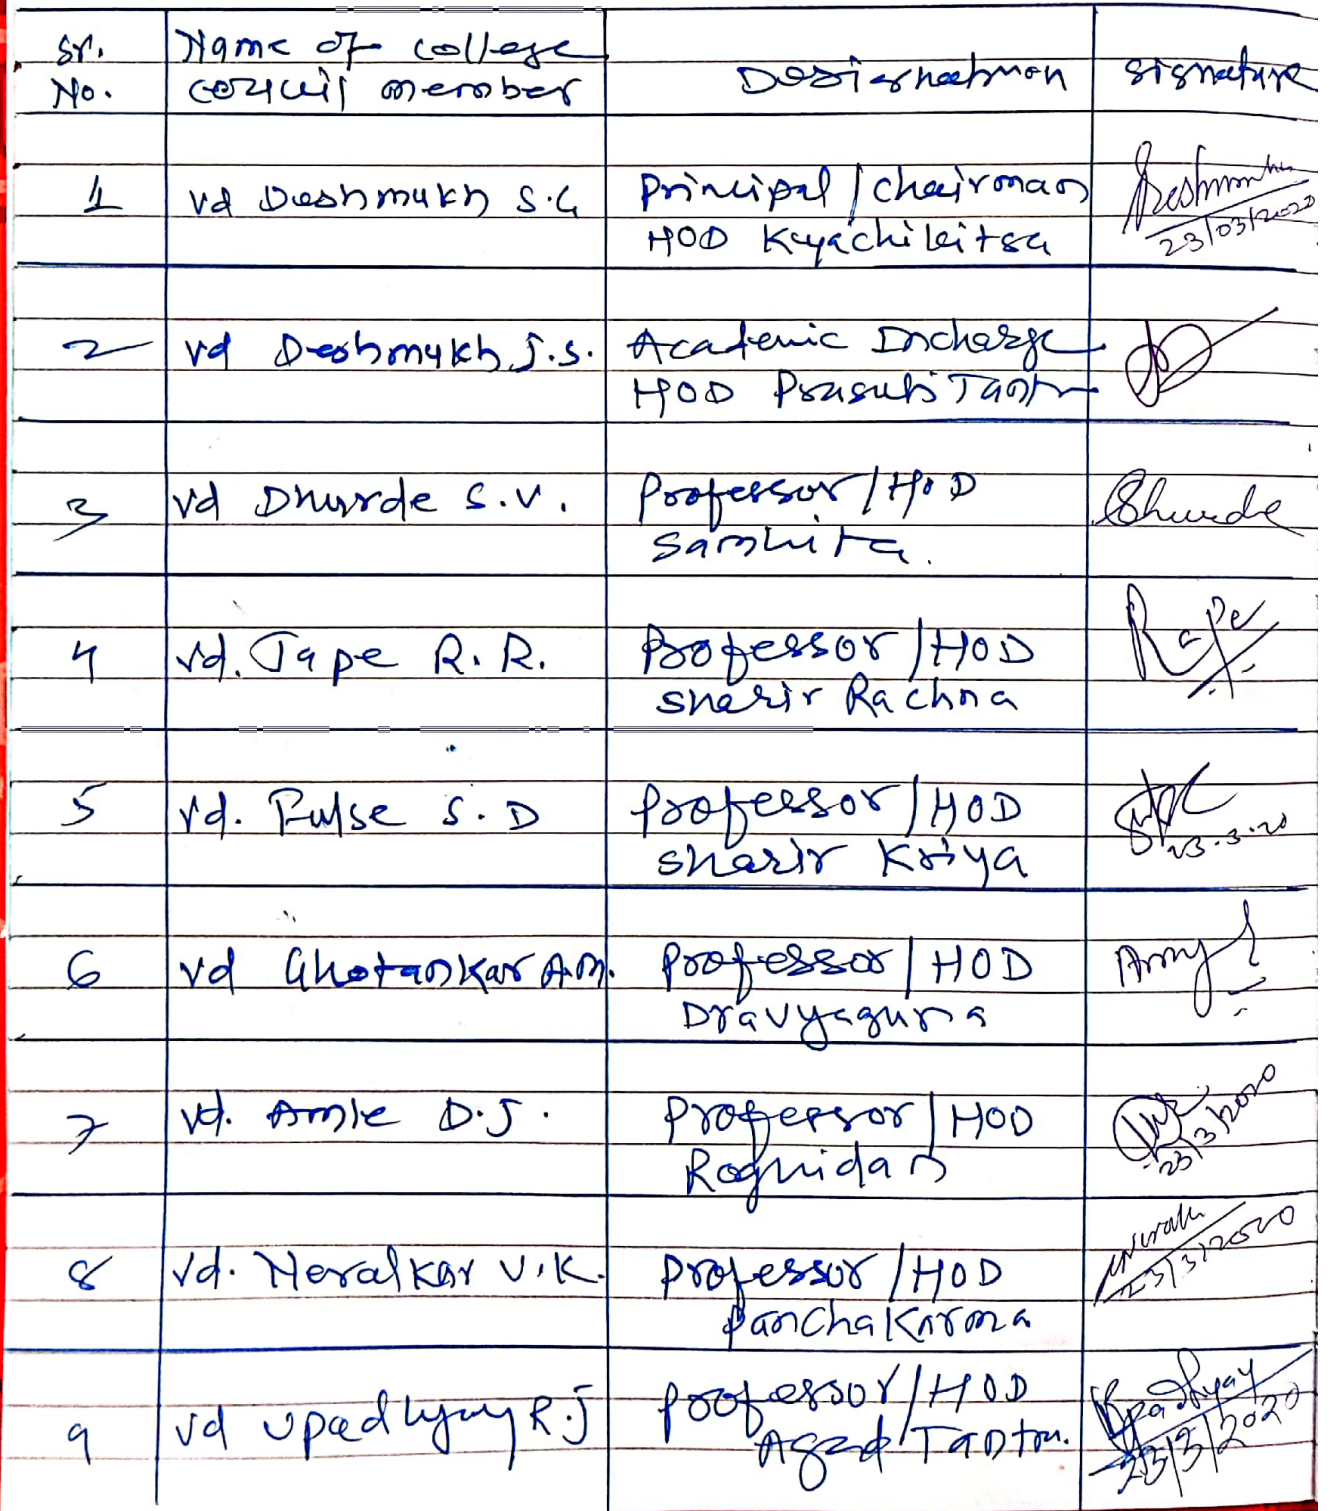 Sr. No. Name of college council member Designation Signature
1 Vd Deshmukh S.G Principal / Chairman Deshmukh
HOD Kayachikitsa 23/03/2020
2 Vd Deshmukh J.S. Academic Incharge
HOD Prasuti Tantra
3 Vd Dhurde S.V. Professor / H.O.D Dhurde
Samhita.
4 Vd. Tape R.R. Professor / HOD Rape
Sharir Rachna
5 Vd. Fulse S.D Professor / HOD
Sharir Kriya 23.3.20
6 Vd Ghotankar A.M. Professor / HOD
Dravyaguna
7 Vd. Amle D.J. Professor / HOD
Rognidan 23/3/2020
8 Vd. Neralkar V.K. Professor / HOD
Panchakarma 23/3/2020
9 Vd Upadhyay R.J Professor / HOD Upadhyay
Agad Tantra. 23/3/2020